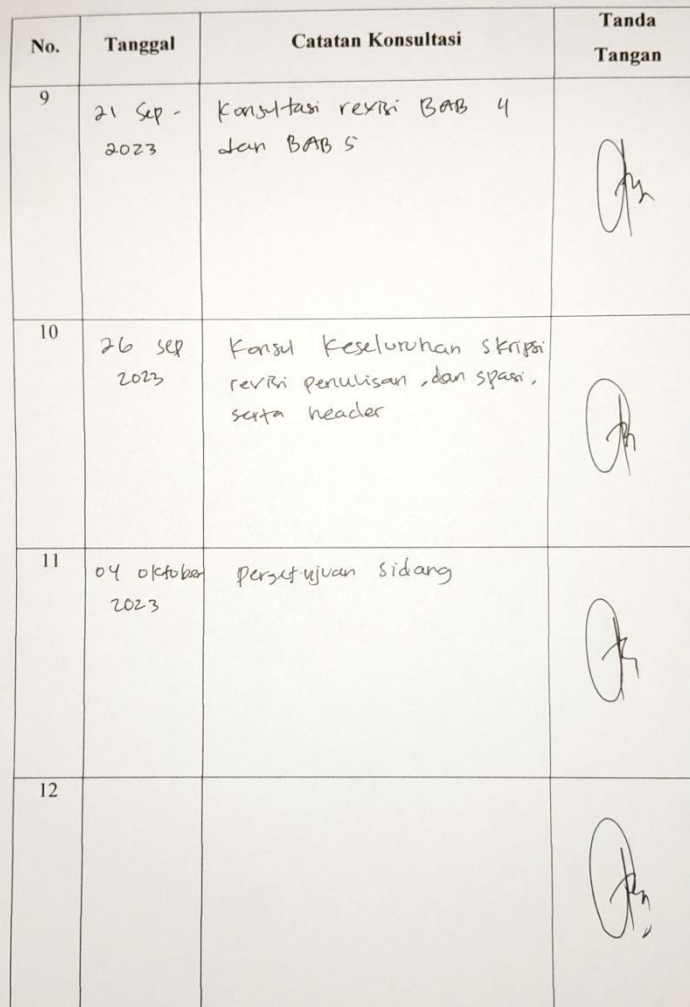 No. Tanggal Catatan Konsultasi Tanda
Tangan
9 21 Sep - Konsultasi revisi BAB 4
2023 dan BAB 5
10 26 sep Konsul Keseluruhan skripsi
2023 revisi penulisan, dan spasi,
serta header
11 04 oktober persetujuan sidang
2023
12